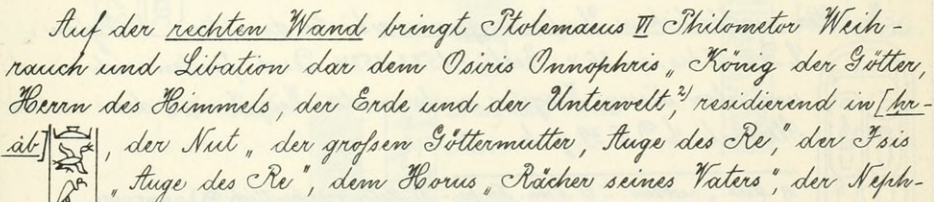 Auf der rechten Wand bringt Ptolemaeus VI Philometor Weih-
rauch und Libation dar dem Osiris Onnophris „König der Götter,
Herrn des Himmels, der Erde und der Unterwelt,²⁾ residierend in [hr-
áb] , der Nut „der großen Göttermutter, Auge des Re“, der Isis
„Auge des Re“, dem Horus „Rächer seines Vaters“, der Neph-